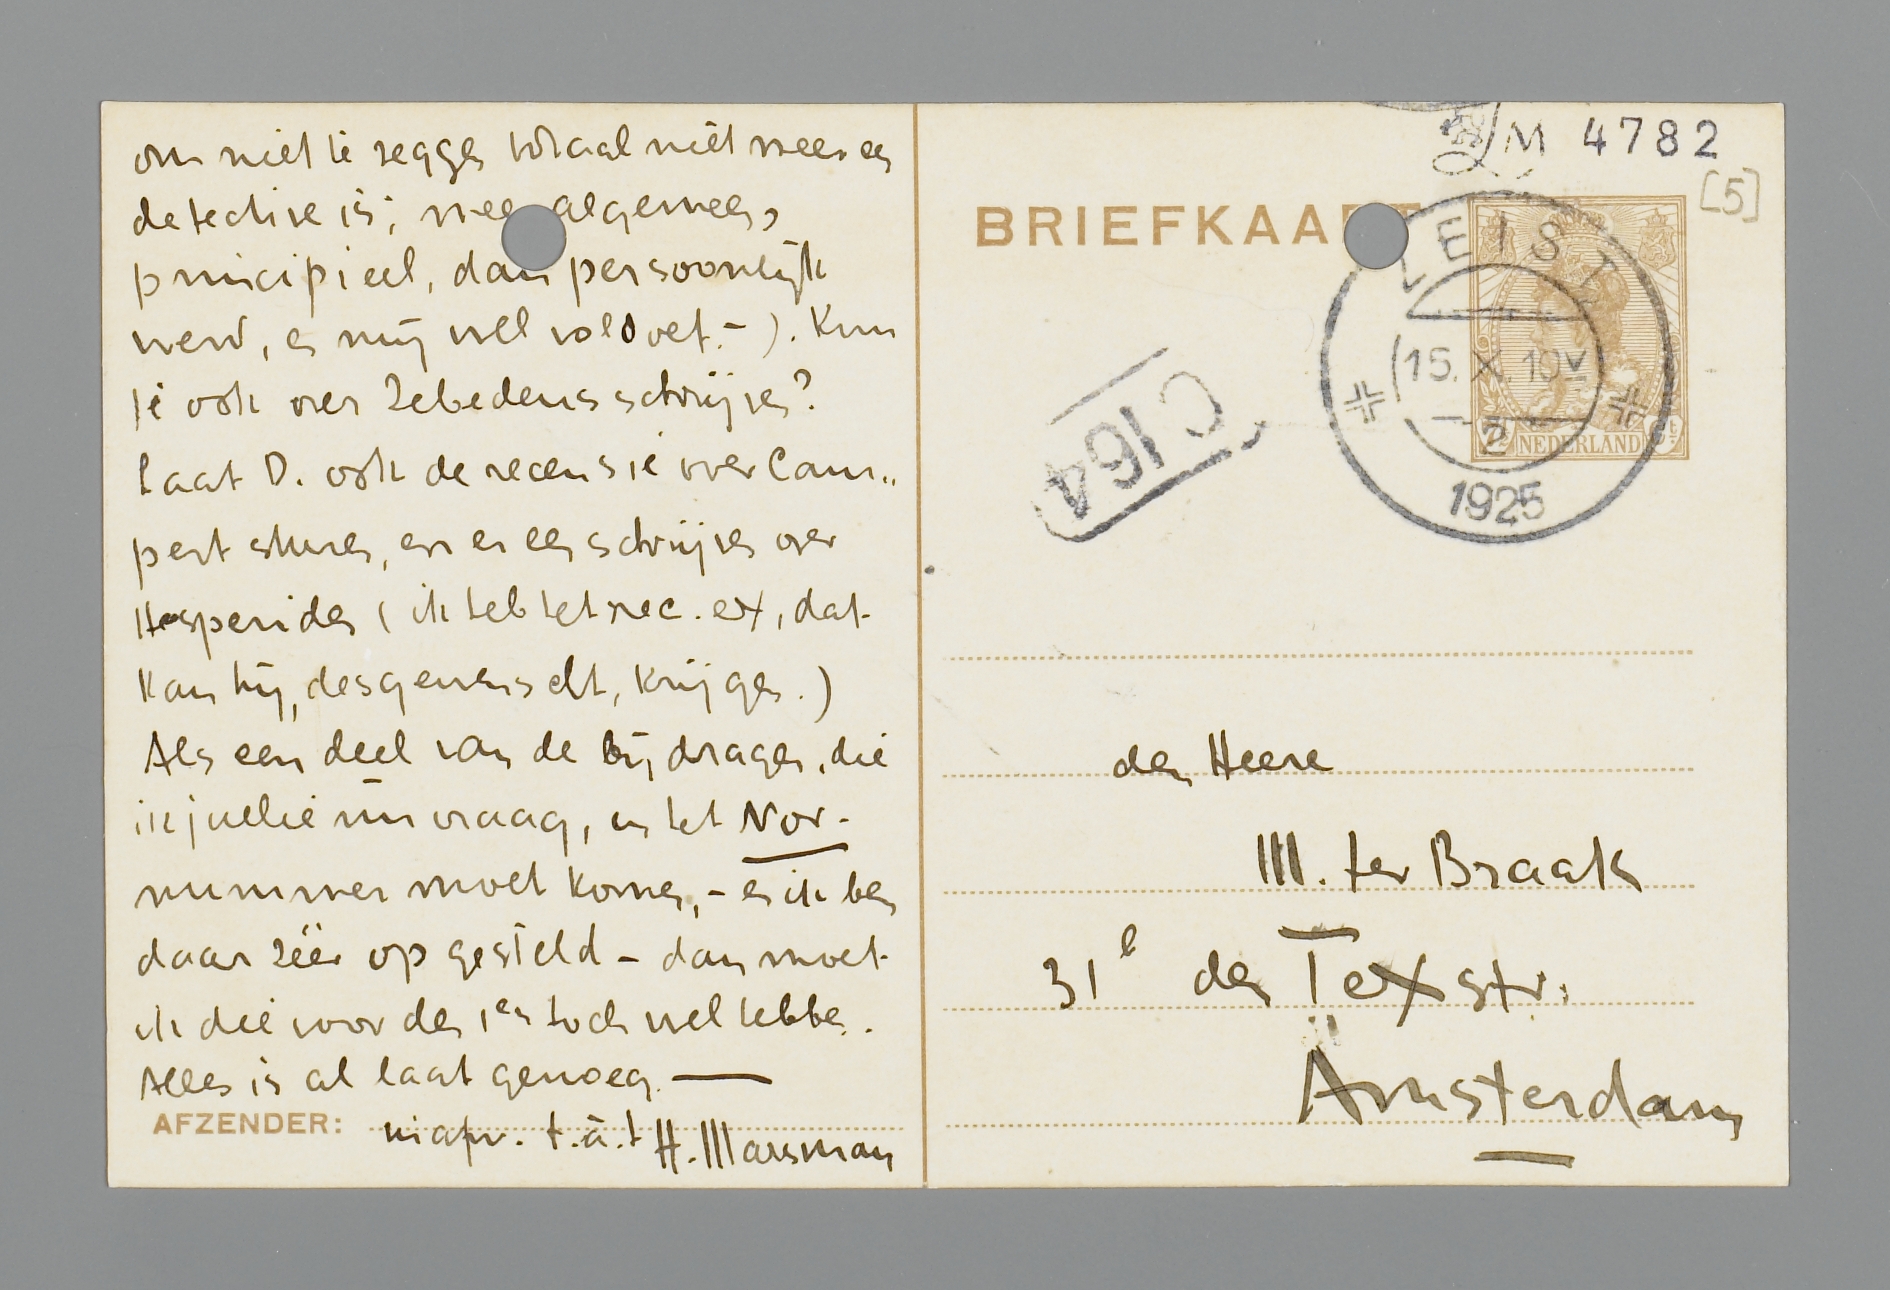 om niet te zeggen totaal niet meer een
detective is; meer algemeen,
principieel, dan persoonlijk
werd, en mij wel voldoet. – ). Kun
je ook over Zebedeus schrijven?
Laat D. ook de recensie over Cam-
pert sturen, en er een schrijven over
Hesperiden (ik heb het rec. ex, dat
kan hij, desgewenscht, krijgen.)
Als een deel van de bijdragen, die
ik jullie nu vraag, in het Nov.-
nummer moet komen, – en ik ben
daar zéér op gesteld – dan moet
ik die voor den 1en toch wel hebben.
Alles is al laat genoeg. —
AFZENDER: t.à.t H. Marsman
M 4782
[5]
BRIEFKAART
ZEIST
15.X.10V
2
1925
NEDERLAND
C164
den Heere
M. ter Braak
31 den Texstr.
Amsterdam